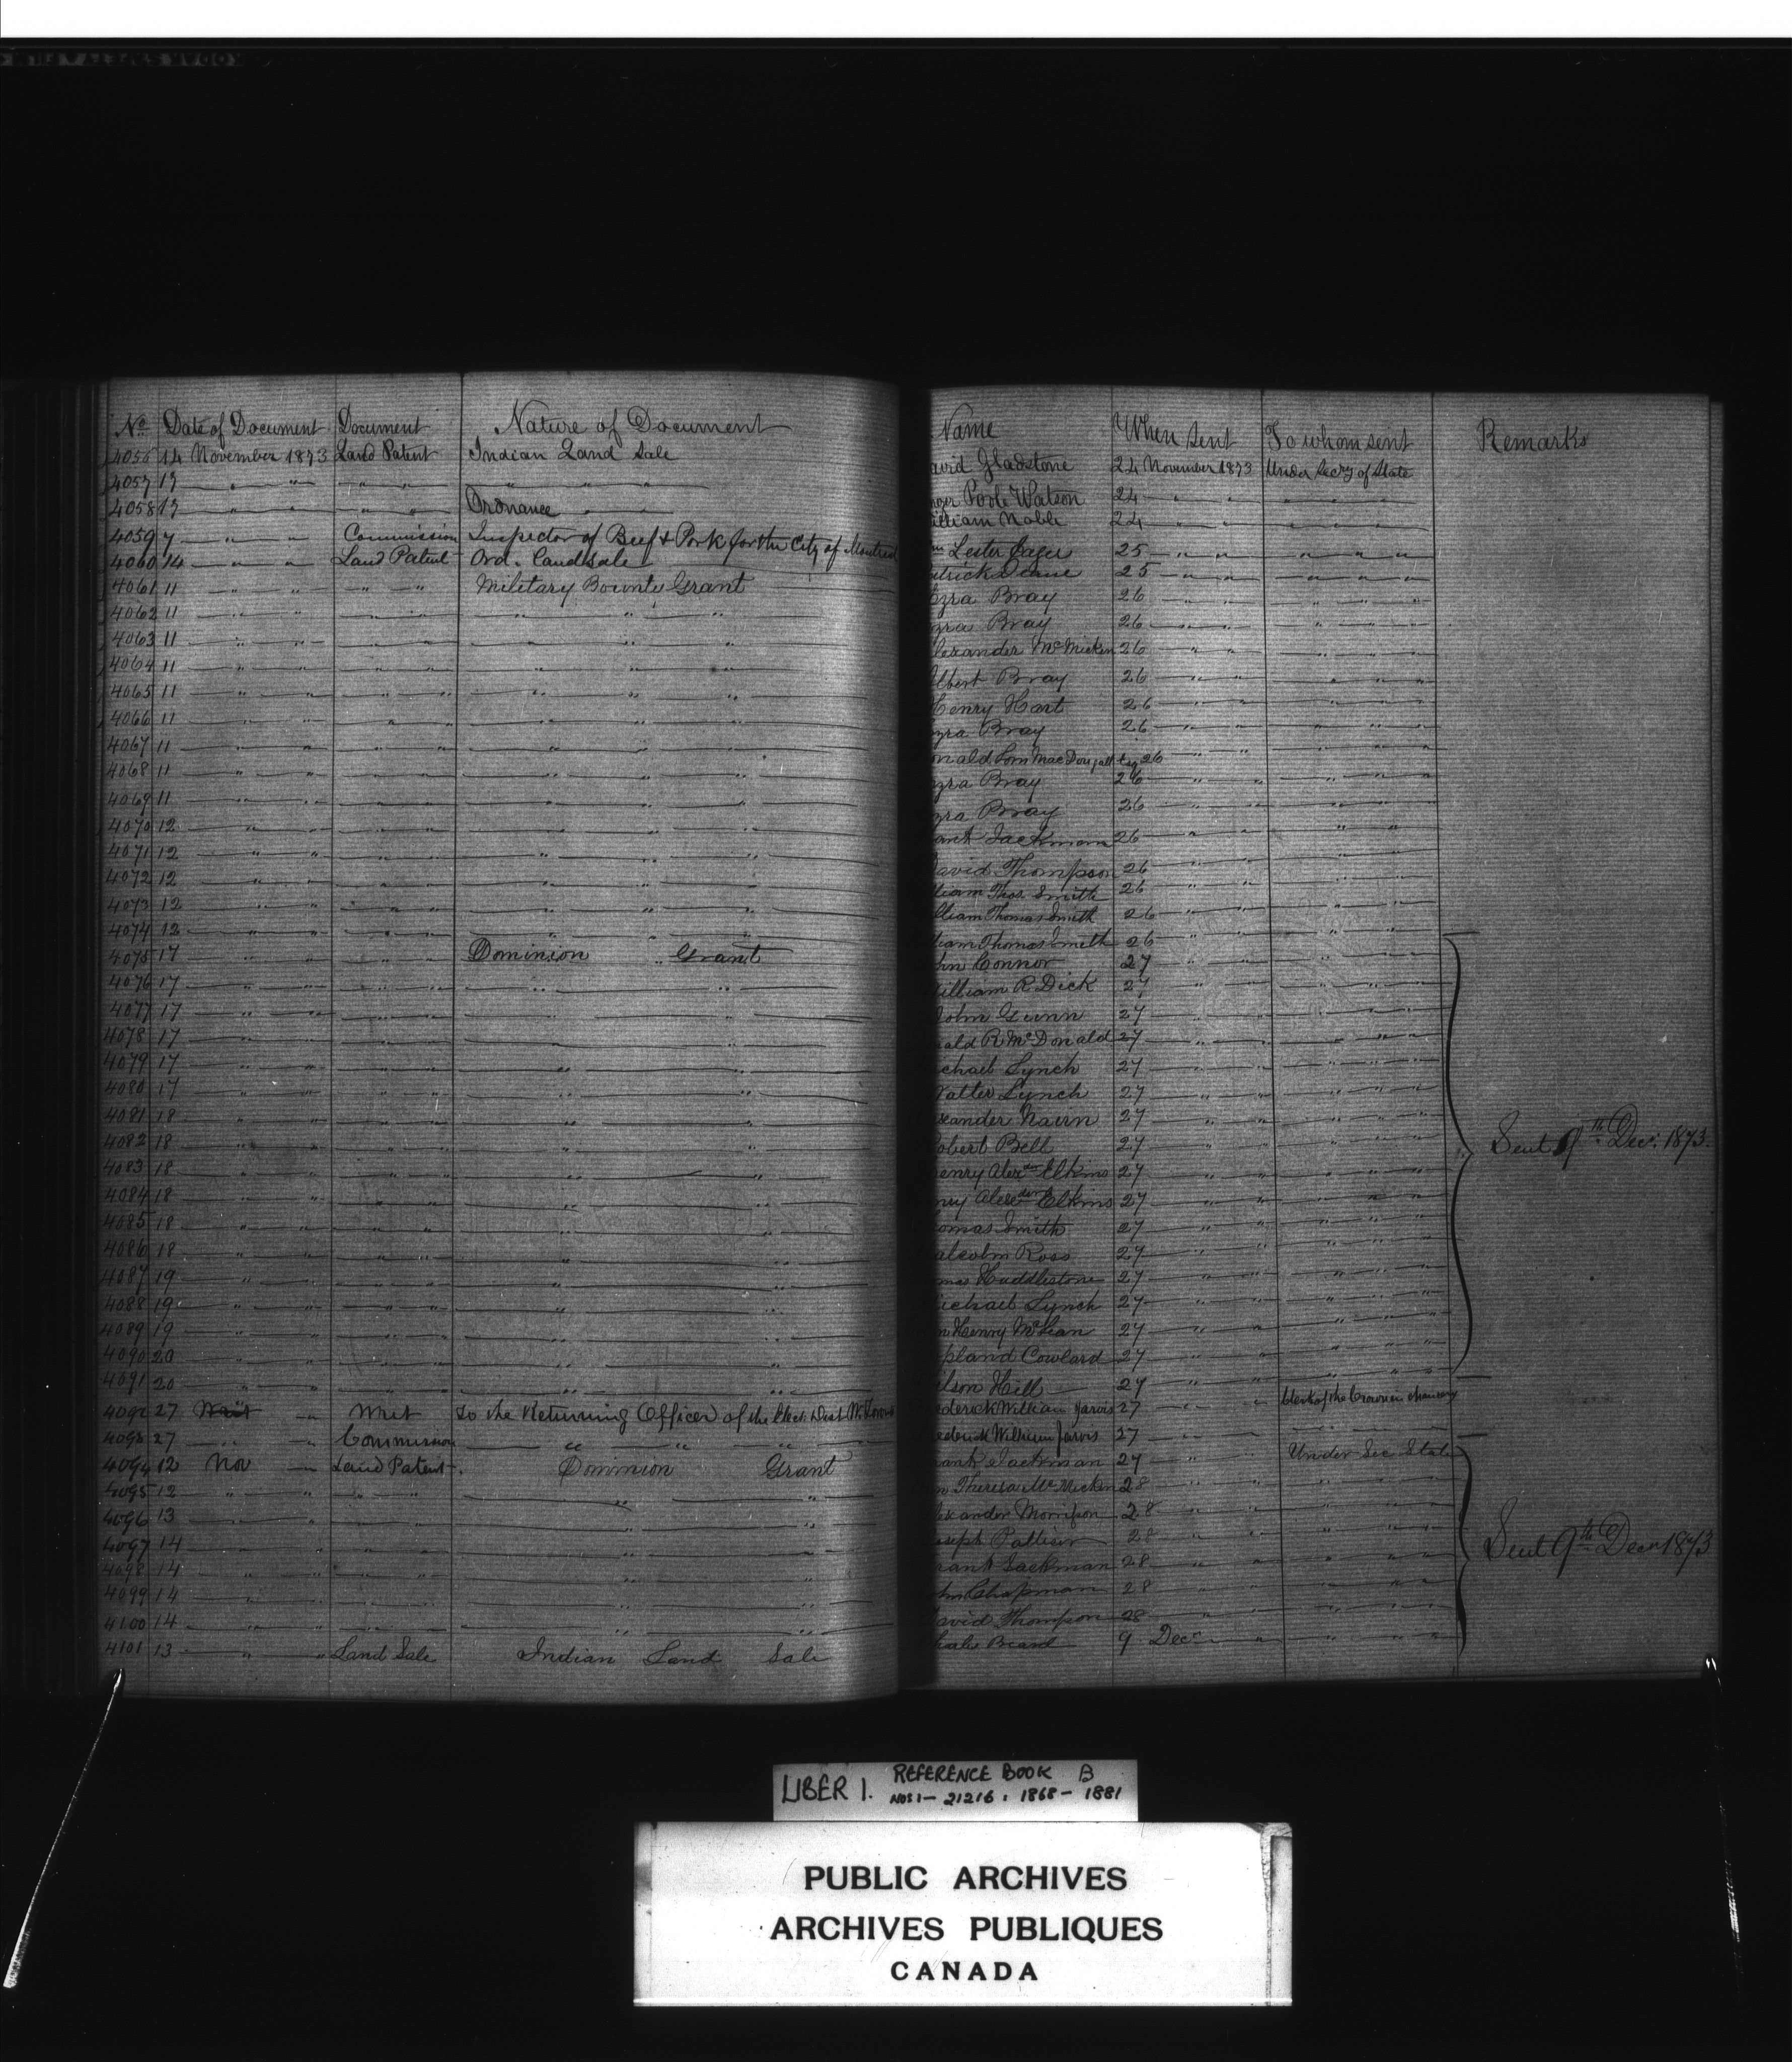 No Date of Document Document Nature of Document Name When Sent To whom sent Remarks
4056 14 November 1873 Land Patent Indian Land Sale avid Gladstone 24 November 1873 Under Secy of State
4057 13 " " " " " " " Poole Watson 24 " " " " "
4058 13 " " " " Ordnance " " illiam Noble 24 " " " " "
4059 7 " " Commission Inspector of Beef & Pork for the City of Montreal Lester 25 " " " " "
4060 14 " " Land Patent Ord. Land Sale atrick 25 " " " " "
4061 11 " " " " Military Bounty Grant Ezra Bray 26 " " " " "
4062 11 " " " " " " " zra Bray 26 " " " " "
4063 11 " " " " " " " lexander McMicken 26 " " " " "
4064 11 " " " " " " " lbert Bray 26 " " " " "
4065 11 " " " " " " " Henry Hart 26 " " " " "
4066 11 " " " " " " " zra Bray 26 " " " " "
4067 11 " " " " " " " onald Lorn MacDougall Esq 26 " " " " "
4068 11 " " " " " " " zra Bray 26 " " " " "
4069 11 " " " " " " " zra Bray 26 " " " " "
4070 12 " " " " " " " ank Jackman 26 " " " " "
4071 12 " " " " " " " avid Thompson 26 " " " " "
4072 12 " " " " " " " lliam Thos Smith 26 " " " " "
4073 12 " " " " " " " lliam Thomas Smith 26 " " " " "
4074 12 " " " " " " " liam Thomas Smith 26 " " " " "
4075 17 " " " " Dominion " Grant ohn Connor 27 " " " " "
4076 17 " " " " " " illiam R Dick 27 " " " " "
4077 17 " " " " " " John Gunn 27 " " " " "
4078 17 " " " " " " ald R McDonald 27 " " " " "
4079 17 " " " " " " ichael Lynch 27 " " " " "
4080 17 " " " " " " Walter Lynch 27 " " " " "
4081 18 " " " " " " exander Nairn 27 " " " " "
4082 18 " " " " " " obert Bell 27 " " " " " Sent 9th Decr 1873
4083 18 " " " " " " enry Alexr Elkins 27 " " " " "
4084 18 " " " " " " nry Alexander Elkins 27 " " " " "
4085 18 " " " " " " omas Smith 27 " " " " "
4086 18 " " " " " " alcolm Ross 27 " " " " "
4087 19 " " " " " " mes Huddlestone 27 " " " " "
4088 19 " " " " " " ichael Lynch 27 " " " " "
4089 19 " " " " " " Henry McLean 27 " " " " "
4090 20 " " " " " " pland Cowlard 27 " " " " "
4091 20 " " " " " " ilson Hill 27 " " " " "
4092 27 Writ " Writ to the Returning Officer of the Elect. Dist W. Toronto ederick William Jarvis 27 " " Clerk of the Crown in Chancery
4093 27 " " Commission " " " ederick William Jarvis 27 " " " " "
4094 12 Nov " Land Patent Dominion Grant rank Jackman 27 " " Under Sec State
4095 12 " " " " " " Theresa McMicken 28 " " " " "
4096 13 " " " " " " lexander Morrison 28 " " " " "
4097 14 " " " " " " oseph Palliser 28 " " " " " Sent 9th Decr 1873
4098 14 " " " " " " rank Jackman 28 " " " " "
4099 14 " " " " " " ohn Chapman 28 " " " " "
4100 14 " " " " " " avid Thompson 28 " " " " "
4101 13 " " Land Sale Indian Land Sale harles Beard 9 Decr " " " "
LIBER 1. REFERENCE BOOK B
NOS 1 - 21216 : 1868 - 1881
PUBLIC ARCHIVES
ARCHIVES PUBLIQUES
CANADA